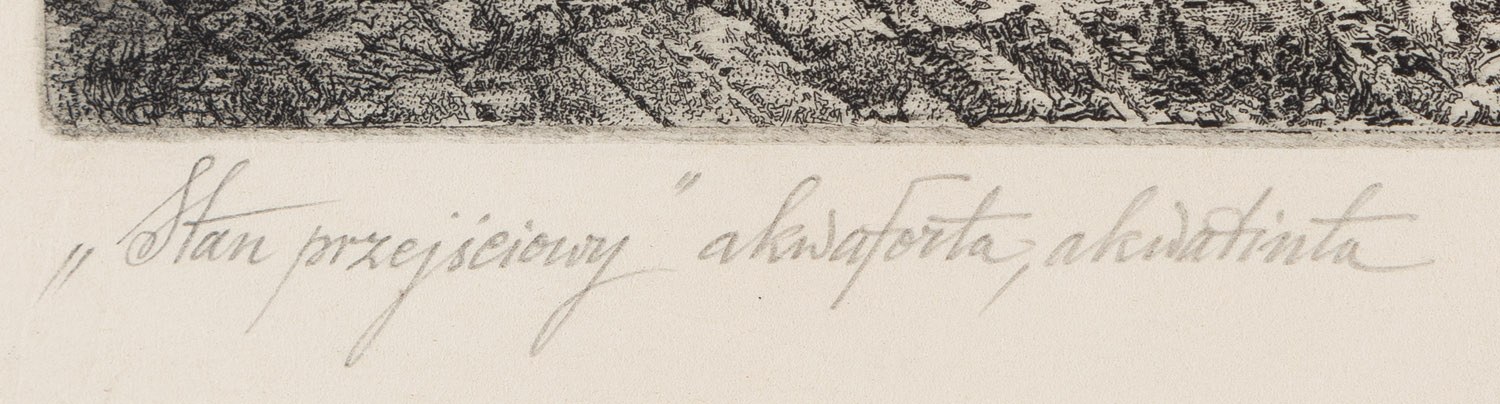 „Stan przejściowy” akwaforta, akwatinta